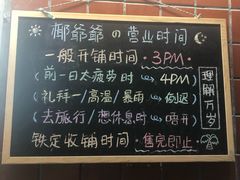 椰爷爷の营业时间
一般开铺时间·3PM·
(前一日太疲劳时 ⇝ 4PM)
(礼拜一/高温/暴雨 ⇝ 倒迟)
(去旅行/想休息时 ⇝ 唔开)
铁定收铺时间·售完即止·
理解万岁